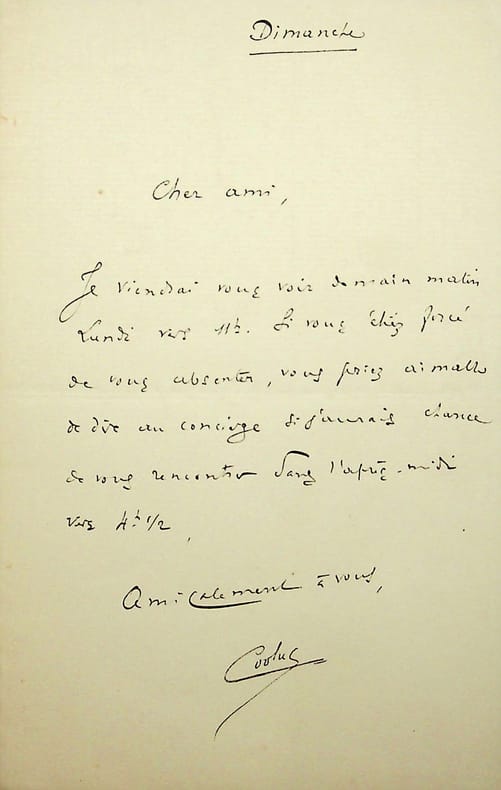 Dimanche
Cher ami,
Je viendrai vous voir demain matin
Lundi vers 11h. Si vous étiez forcé
de vous absenter, vous seriez aimable
de dire au concierge si j'aurais chance
de vous rencontrer dans l'après-midi
vers 4h 1/2,
Amicalement à vous,
Coolus